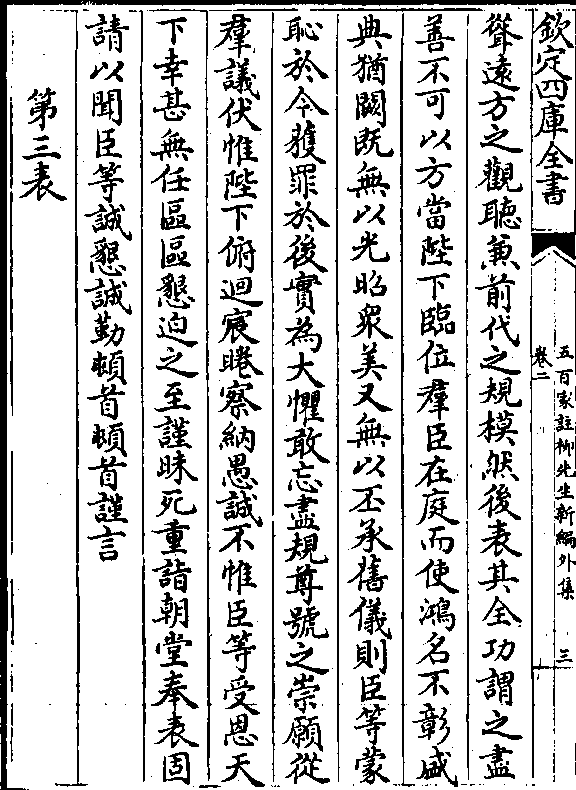 欽定四庫全書
五百家註柳先生新編外集
卷二
三
聳遠方之觀聽兼前代之規模然後表其全功謂之盡
善不可以方當陛下臨位羣臣在庭而使鴻名不彰盛
典猶闕既無以光昭衆美又無以丕承舊儀則臣等蒙
恥於今獲罪於後實為大懼敢忘盡規尊號之崇願從
羣議伏惟陛下俯迴宸睠察納愚誠不惟臣等受恩天
下幸甚無任區區懇迫之至謹昧死重詣朝堂奉表固
請以聞臣等誠懇誠勤頓首頓首謹言
第三表